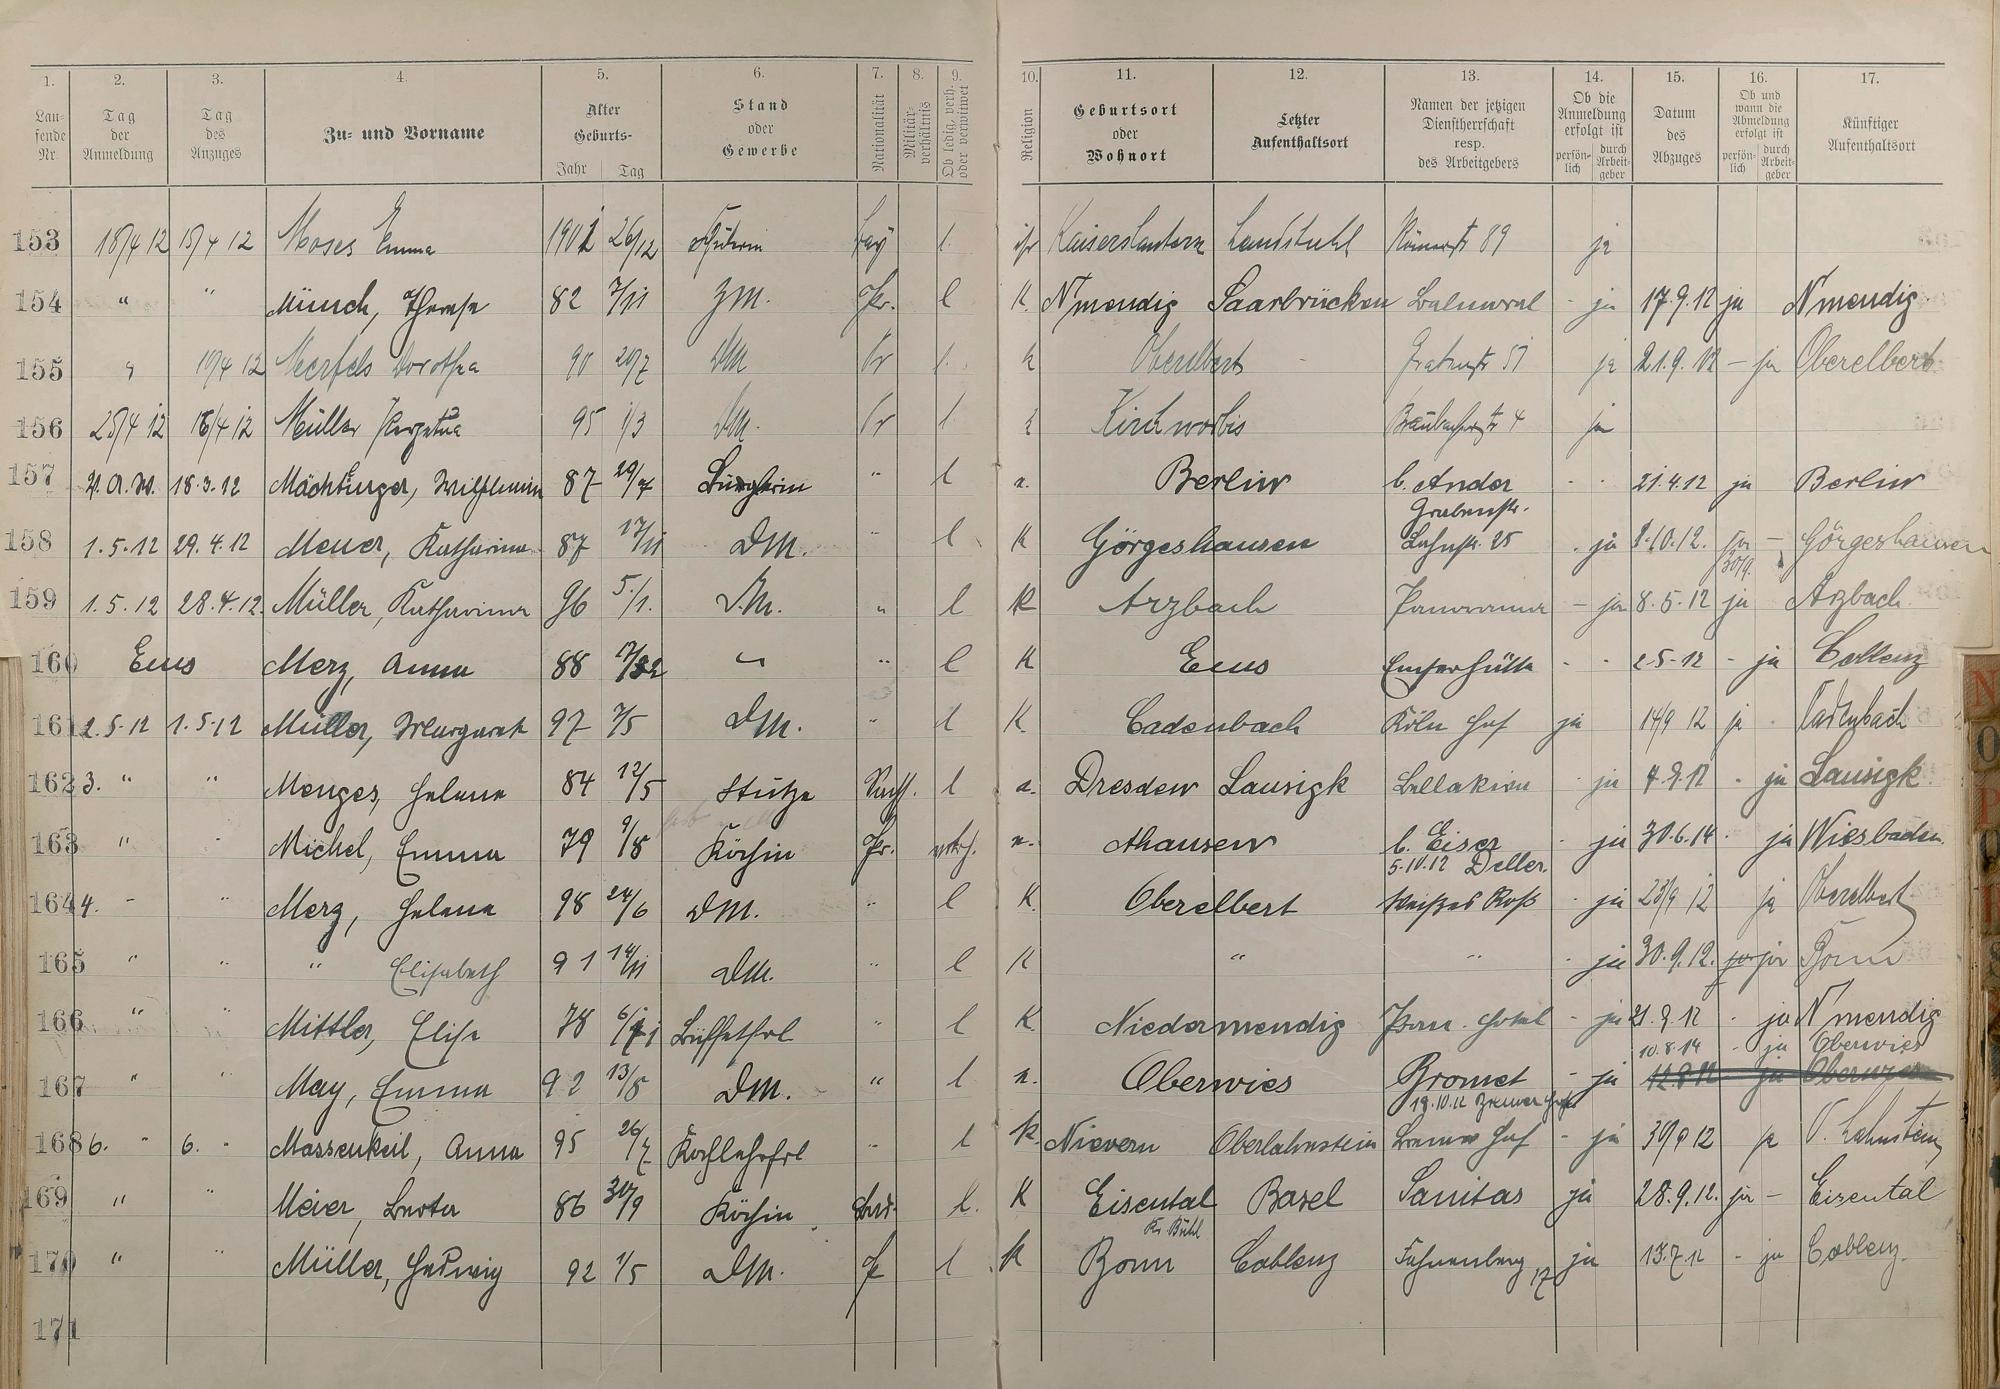 1. 2. 3. 4. 5. 6. 7. 8. 9. 10. 11. 12. 13. 14. 15. 16. 17.
Lau-fende Nr. Tag der Anmeldung Tag des Anzuges Zu- und Vorname Alter Geburts- Jahr Tag Stand oder Gewerbe Nationalität Militär-verhältnis Ob ledig, verh. oder verwitwet Religion Geburtsort oder Wohnort Letzter Aufenthaltsort Namen der jetzigen Dienstherrschaft resp. des Arbeitgebers Ob die Anmeldung erfolgt ist persön-lich durch Arbeit-geber Datum des Abzuges Ob und wann die Abmeldung erfolgt ist persön-lich durch Arbeit-geber Künftiger Aufenthaltsort
153 18/4 12 15/4 12 Moses Emma 1901 26/12 Schülerin bay l. isr Kaiserslautern Landstuhl Römerstr 89 ja
154 " " Münch, Therese 82 7/11 ZM. Pr. l K. N'mendig Saarbrücken Balmoral - ja 17.9.12 ja N'mendig
155 " 10/4 12 Merfels Dorothea 90 20/7 DM Pr l. k Oberelbert Grabenstr 51 ja 21.9.12 - ja Oberelbert
156 25/4 12 16/4 12 Müller Perpetua 95 1/3 DM. Pr l k Kirchworbis Braubacherstr 4 ja
157 18.3.12 Wilhelmine 87 " l Berlin b. Ander - - 21.4.12 ja Berlin
Grabenstr.
158 1.5.12 29.4.12 Meuer, Katharina 87 17/11 DM. " l K Görgeshausen Lahnstr. 25 - ja 1.10.12. ja - Görgeshausen
30/9.
159 1.5.12 28.4.12. Müller, Katharina 96 5./1. D.M. " l K Arzbach Panorama - ja 8.5.12 ja Arzbach
160 Ems Merz, Anna 88 " " l K Ems Emserhütte - - 2.5.12 - ja Coblenz
161 2.5.12 1.5.12 Müller, Margareth 97 7/5 DM. " l K. Cadenbach Köln Hof ja 14/9 12 ja - Cadenbach
162 3. " " Menges, Helene 84 12/5 Stütze Sachs. l Dresden Lausigk Bellarion - ja 4.9.12 - ja Lausigk
163 " - Michel, Emma 79 9/8 Köchin Pr. Ahausen b. Eiser - ja 30.6.14 - ja Wiesbaden
5.10.12 Deller.
164 4. - " Merz, Helene 98 24/6 DM. " l K. Oberelbert Weißes Roß - ja 23/9 12 ja Oberelbert
165 " " " Elisabeth 91 14/11 DM. " l K " " - ja 30.9.12. ja ja Bonn
166 " " Mittler, Elise 78 Büffetfrl " l K Niedermendig Pan. Hotel - ja 21.9.12 - ja N'mendig
10.8.14 - ja Oberwies
167 " " May, Emma 92 13/8 DM. " l Oberwies Bromet - ja 12.9.12 ja Oberwies
19.10.12 Bremer Hof
168 6. " 6. " Massenkeil, Anna 95 26/7 Kochlehrfrl " l K. Nievern Oberlahnstein Bremer Hof - ja 30/9 12 ja O. Lahnstein
169 " " Meier, Berta 86 30/9 Köchin bad. l. K Eisental Basel Sanitas ja 28.9.12. ja - Eisental
Kr. Bühl
170 " " Müller, Hedwig 92 1/5 DM. Pr l K Bonn Coblenz Fahnenberg ja 15.7.12 - ja Coblenz.
17
171